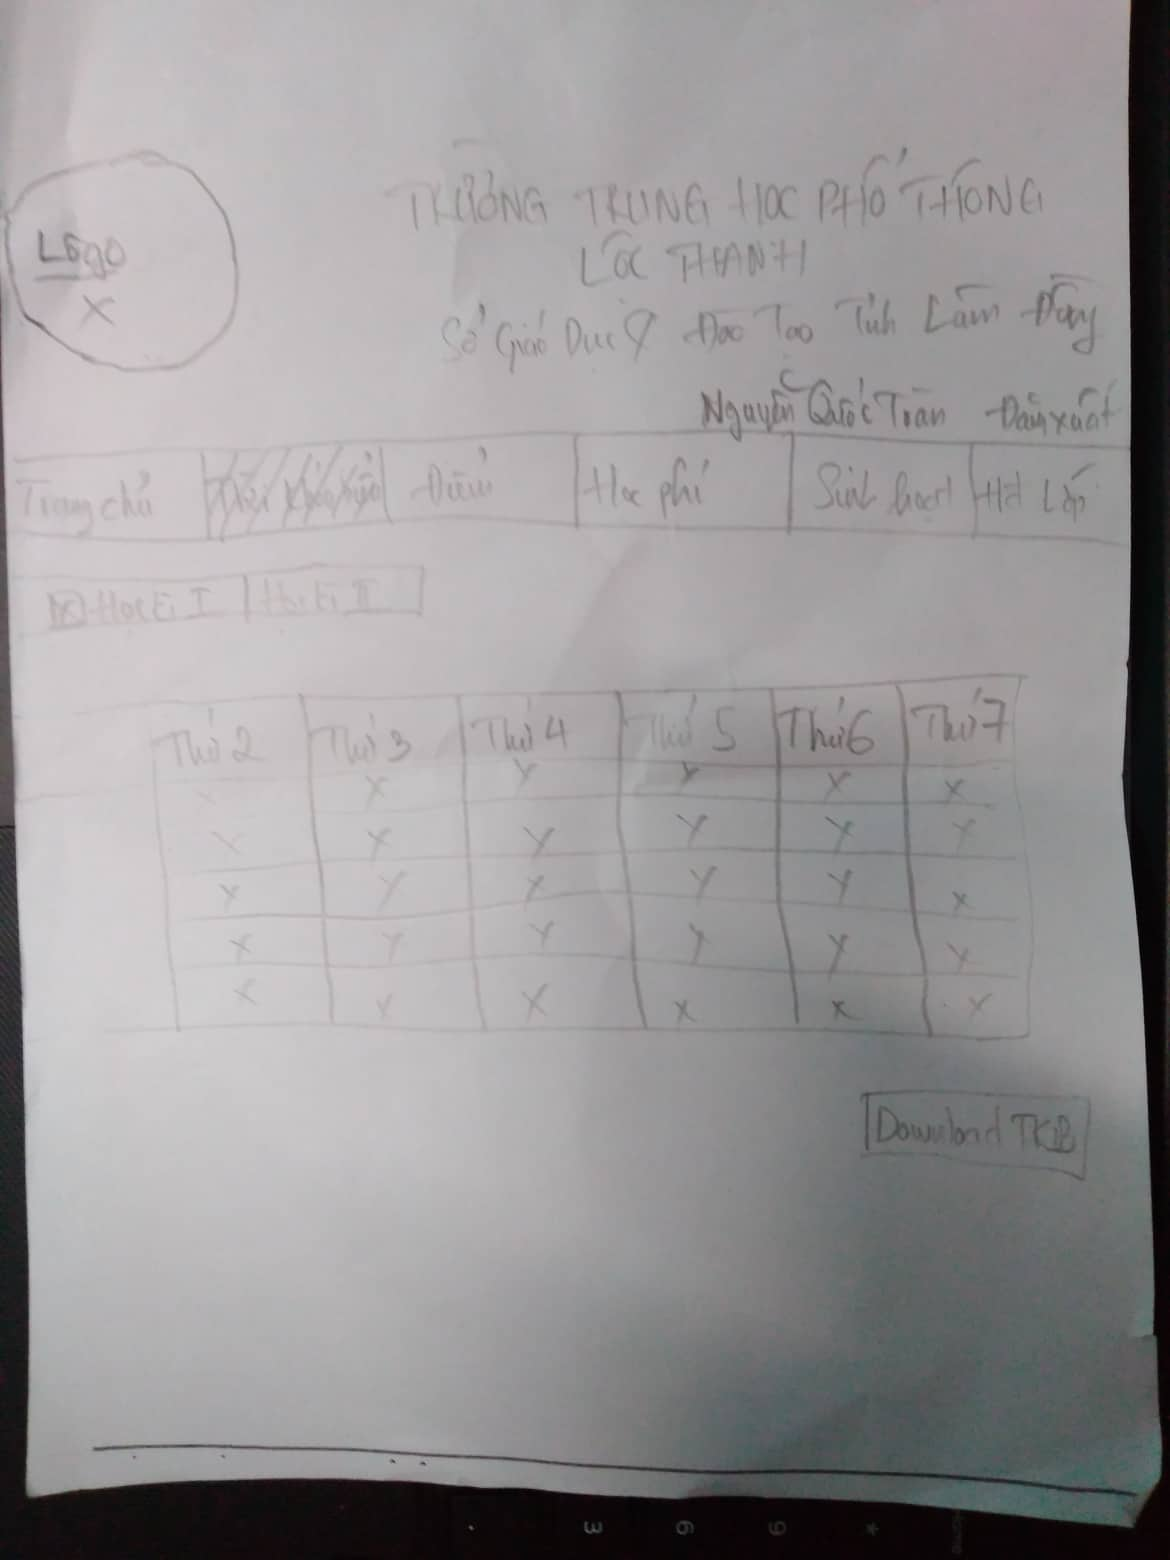 Lôgo
X
TRƯỜNG TRUNG HỌC PHỔ THÔNG
LỘC THANH
Sở Giáo Dục & Đào Tạo Tỉnh Lâm Đồng
Nguyễn Quốc Toàn Đăng xuất
Trang chủ Thời khóa biểu Điểm Học phí Sinh hoạt Lớp
Học kì I Học kì II
Thứ 2 Thứ 3 Thứ 4 Thứ 5 Thứ 6 Thứ 7
X X X X X X
X X X X X X
X X X X X X
X X X X X X
X X X X X X
Download TKB
3 6 9 *